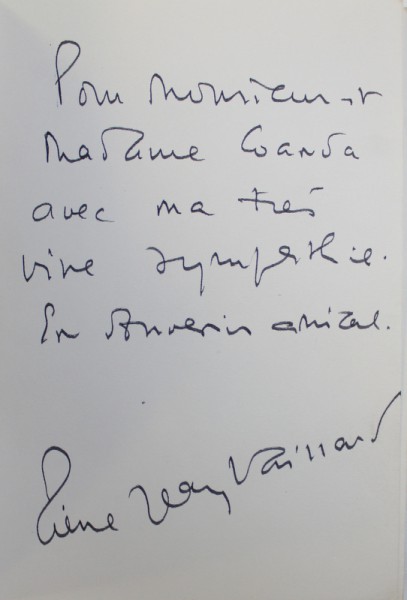 Pour Monsieur et
Madame Coanda
avec ma très
vive sympathie.
En souvenir amical.
Pierre Jean Vaillard